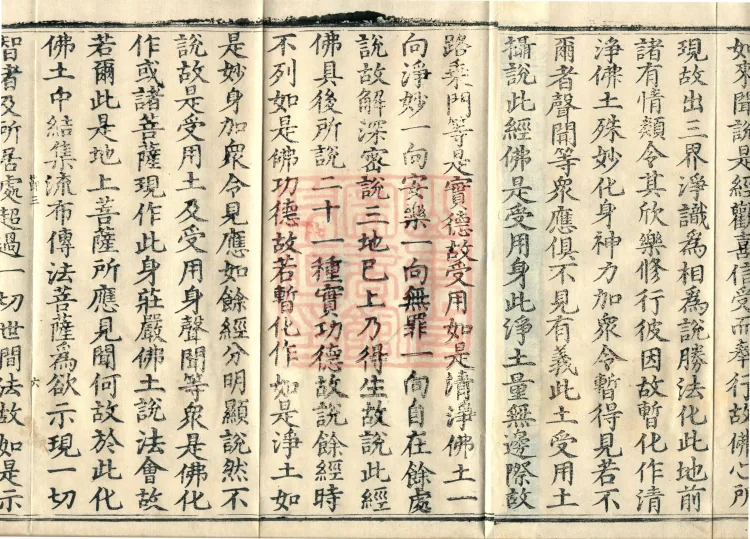 如來聞說是經歡喜信受而奉行故佛心所
現故出三界淨識爲相爲說勝法化此地前
諸有情類令其欣樂修行彼因故暫化作清
淨佛土殊妙化身神力加衆令暫得見若不
爾者聲聞等衆應俱不見有義此土受用土
攝說此經佛是受用身此淨土量無邊際故
路乘門等是實德故受用如是清淨佛土一
向淨妙一向安樂一向無罪一向自在餘處
說故解深密說三地已上乃得生故說此經
佛具後所說二十一種實功德故說餘經時
不列如是佛功德故若暫化作如是淨土如
是妙身加衆令見應如餘經分明顯說然不
說故是受用土及受用身聲聞等衆是佛化
作或諸菩薩現作此身莊嚴佛土說法會故
若爾此是地上菩薩所應見聞何故於此化
佛土中結集流布傳法菩薩爲欲示現一切
六
智者及所居處超過一切世間法故如是示